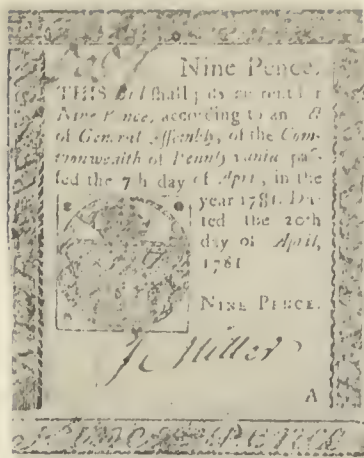 Nine Pence.
THIS Bill shall pass current for
Nine Pence, according to an A
of General Assembly, of the Com-
monwealth of Pennsylvania, paſ-
ſed the 7th day of April, in the
year 1781. Da-
ted the 20th
day of April,
1781
NINE PENCE.
J. Miller
A